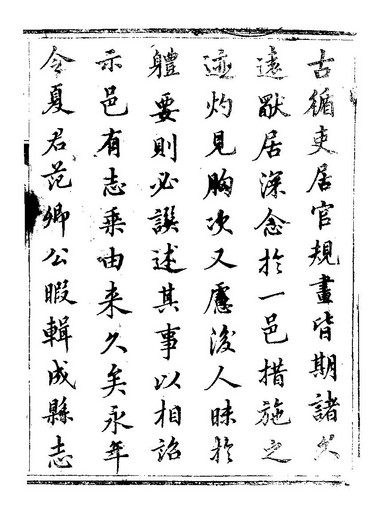 古循吏居官規畫皆期諸久
遠猷居深念扵一邑措施之
迹灼見胸次又慮後人昧扵
軆要則必譔述其事以相詔
示邑有志乘由来久矣永年
令夏君范卿公暇輯成縣志